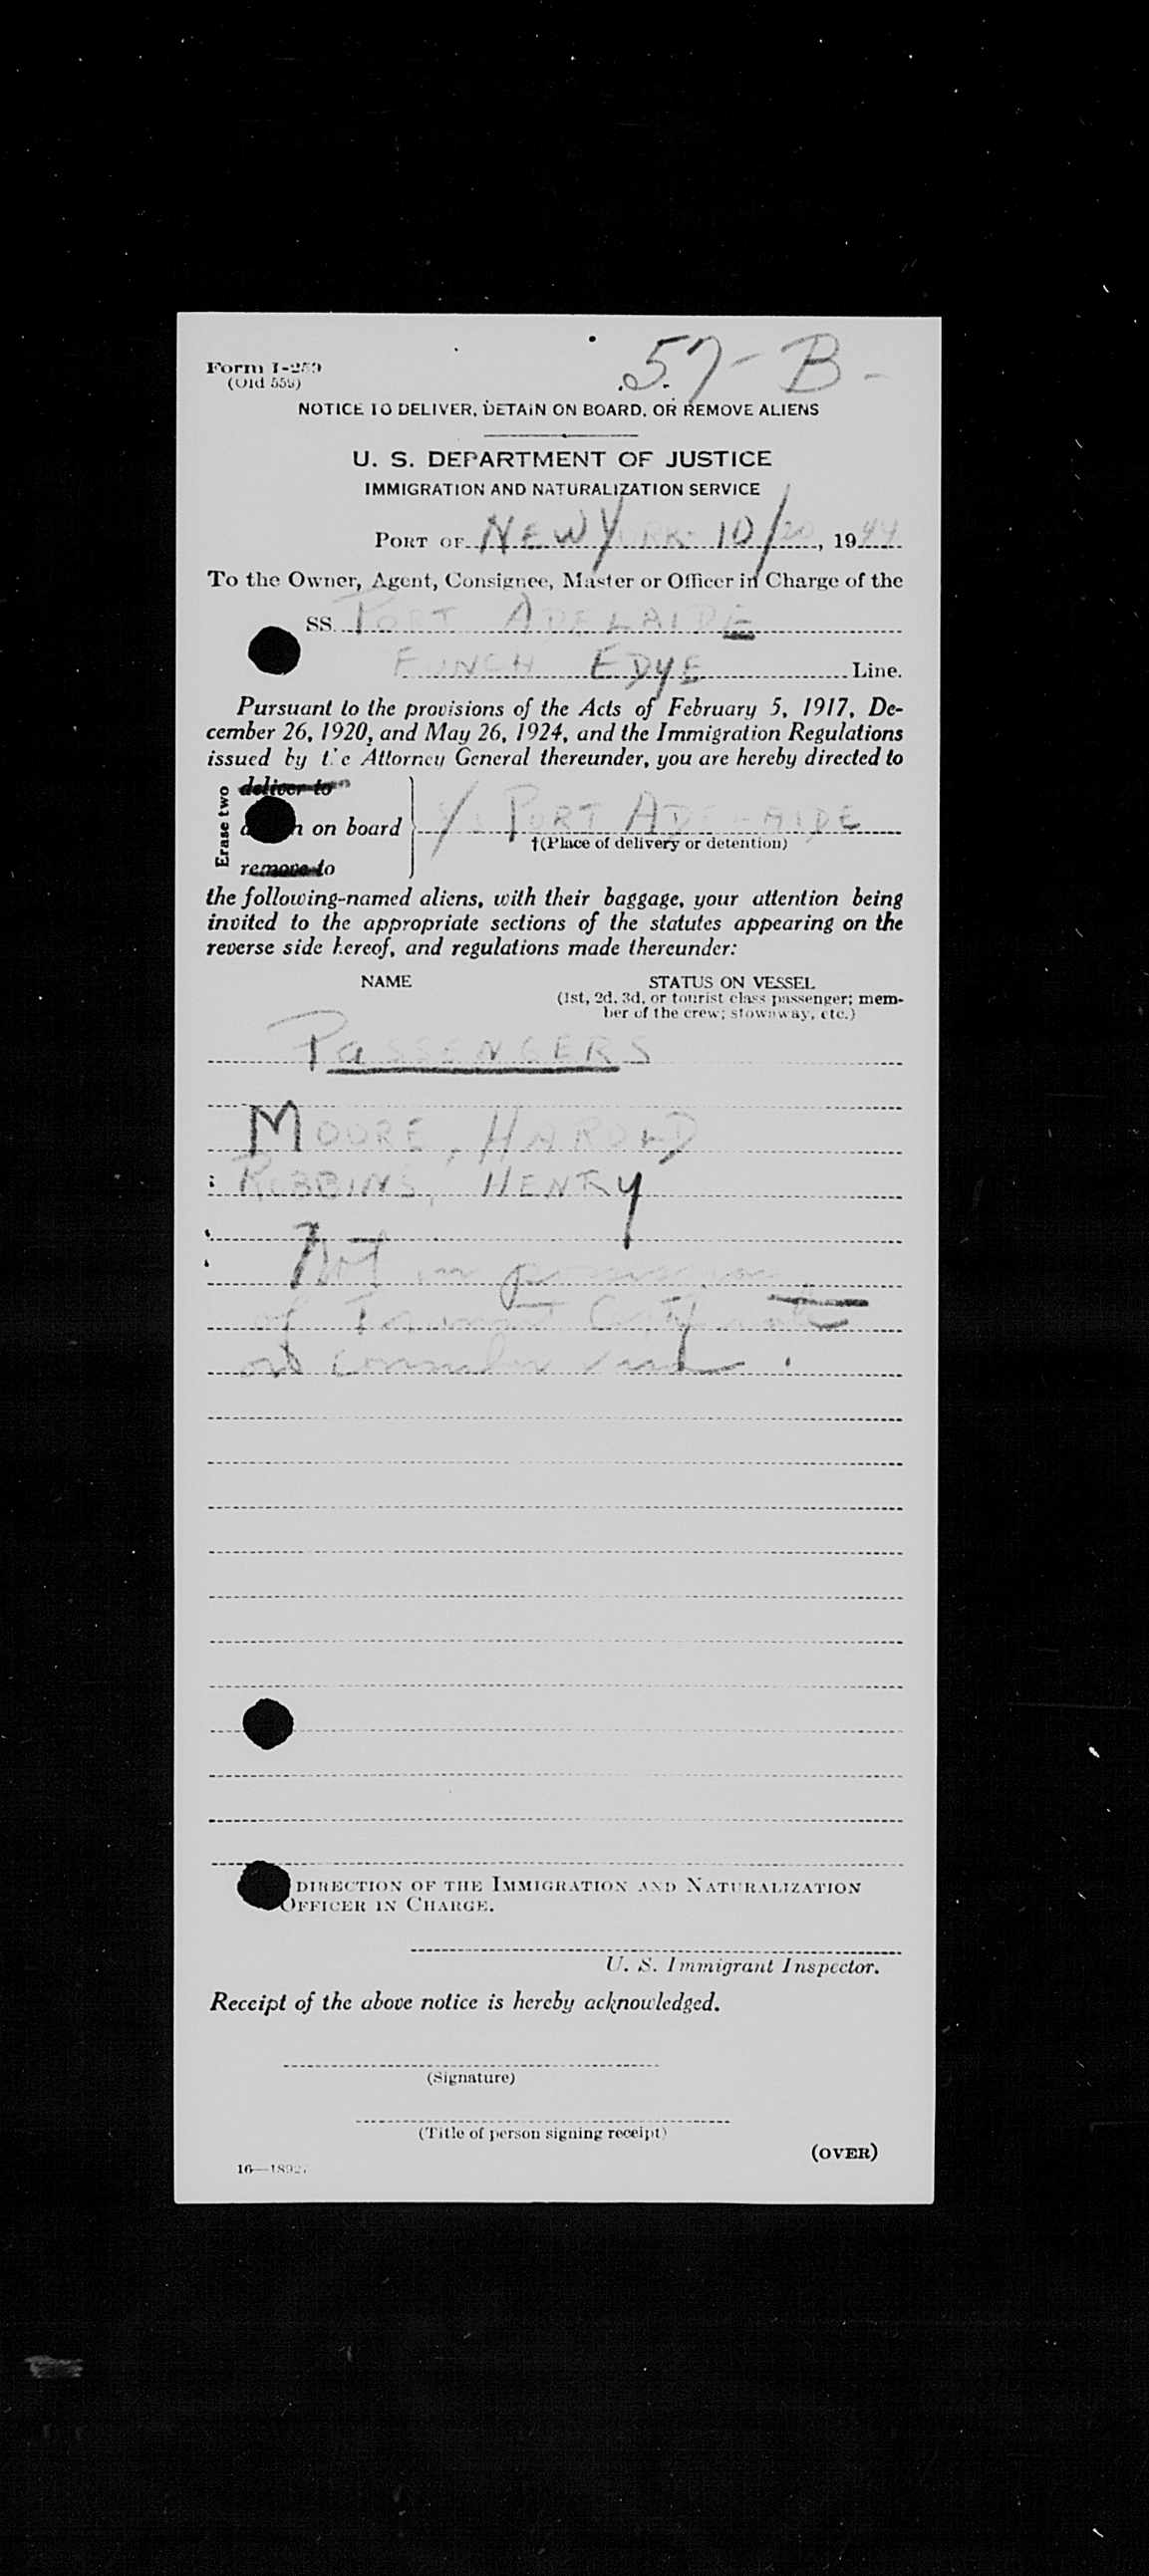 57-B-
Form I-259
(Old 559)
NOTICE TO DELIVER, DETAIN ON BOARD, OR REMOVE ALIENS
U. S. DEPARTMENT OF JUSTICE
IMMIGRATION AND NATURALIZATION SERVICE
PORT OF NEW YORK 10/20, 1944
To the Owner, Agent, Consignee, Master or Officer in Charge of the
SS. PORT ADELAIDE
FUNCH EDYE Line.
Pursuant to the provisions of the Acts of February 5, 1917, De-
cember 26, 1920, and May 26, 1924, and the Immigration Regulations
issued by the Attorney General thereunder, you are hereby directed to
Erase two
deliver to
on board
remove to
PORT ADELAIDE
†(Place of delivery or detention)
the following-named aliens, with their baggage, your attention being
invited to the appropriate sections of the statutes appearing on the
reverse side hereof, and regulations made thereunder:
NAME STATUS ON VESSEL
(1st, 2d, 3d, or tourist class passenger; mem-
ber of the crew; stowaway, etc.)
PASSENGERS
MOORE, HAROLD
ROBBINS, HENRY
Not in possession
of Transit Certificate
or consular visa.
DIRECTION OF THE IMMIGRATION AND NATURALIZATION
OFFICER IN CHARGE.
U. S. Immigrant Inspector.
Receipt of the above notice is hereby acknowledged.
(Signature)
(Title of person signing receipt)
(OVER)
16—18927